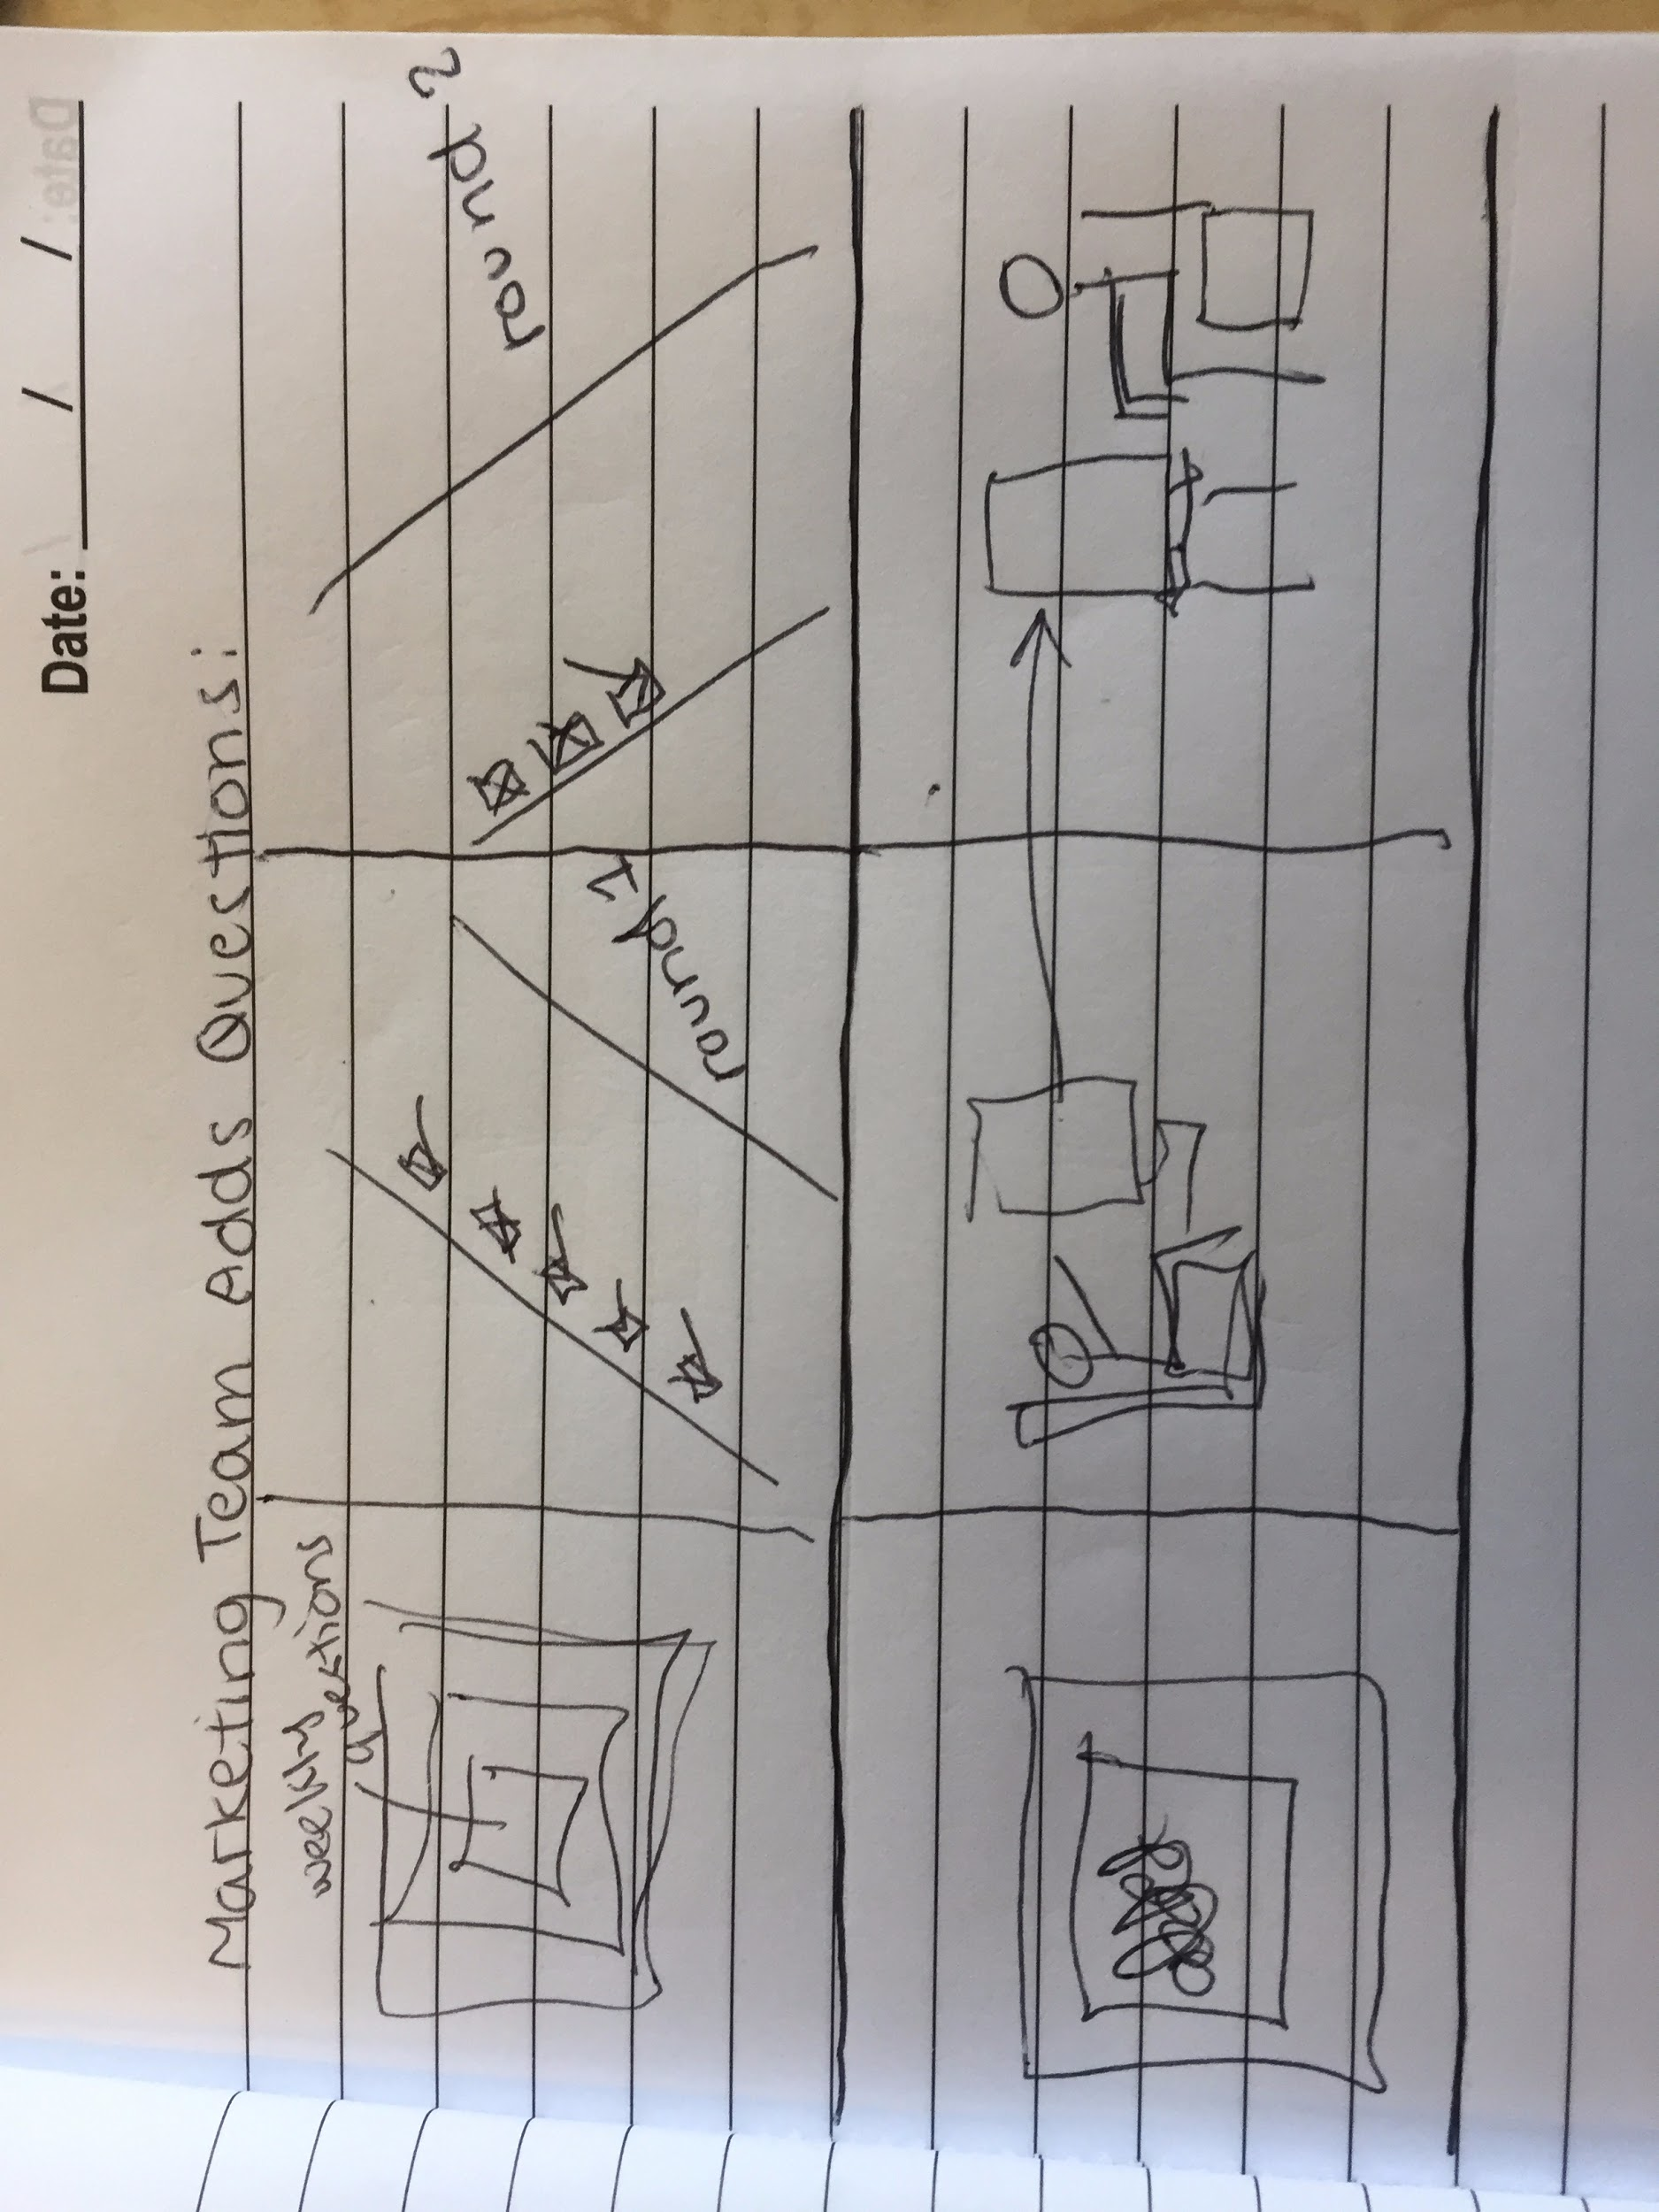 Date: / /
Marketing Team Adds Questions:
weekly
questions
round 1
round 2